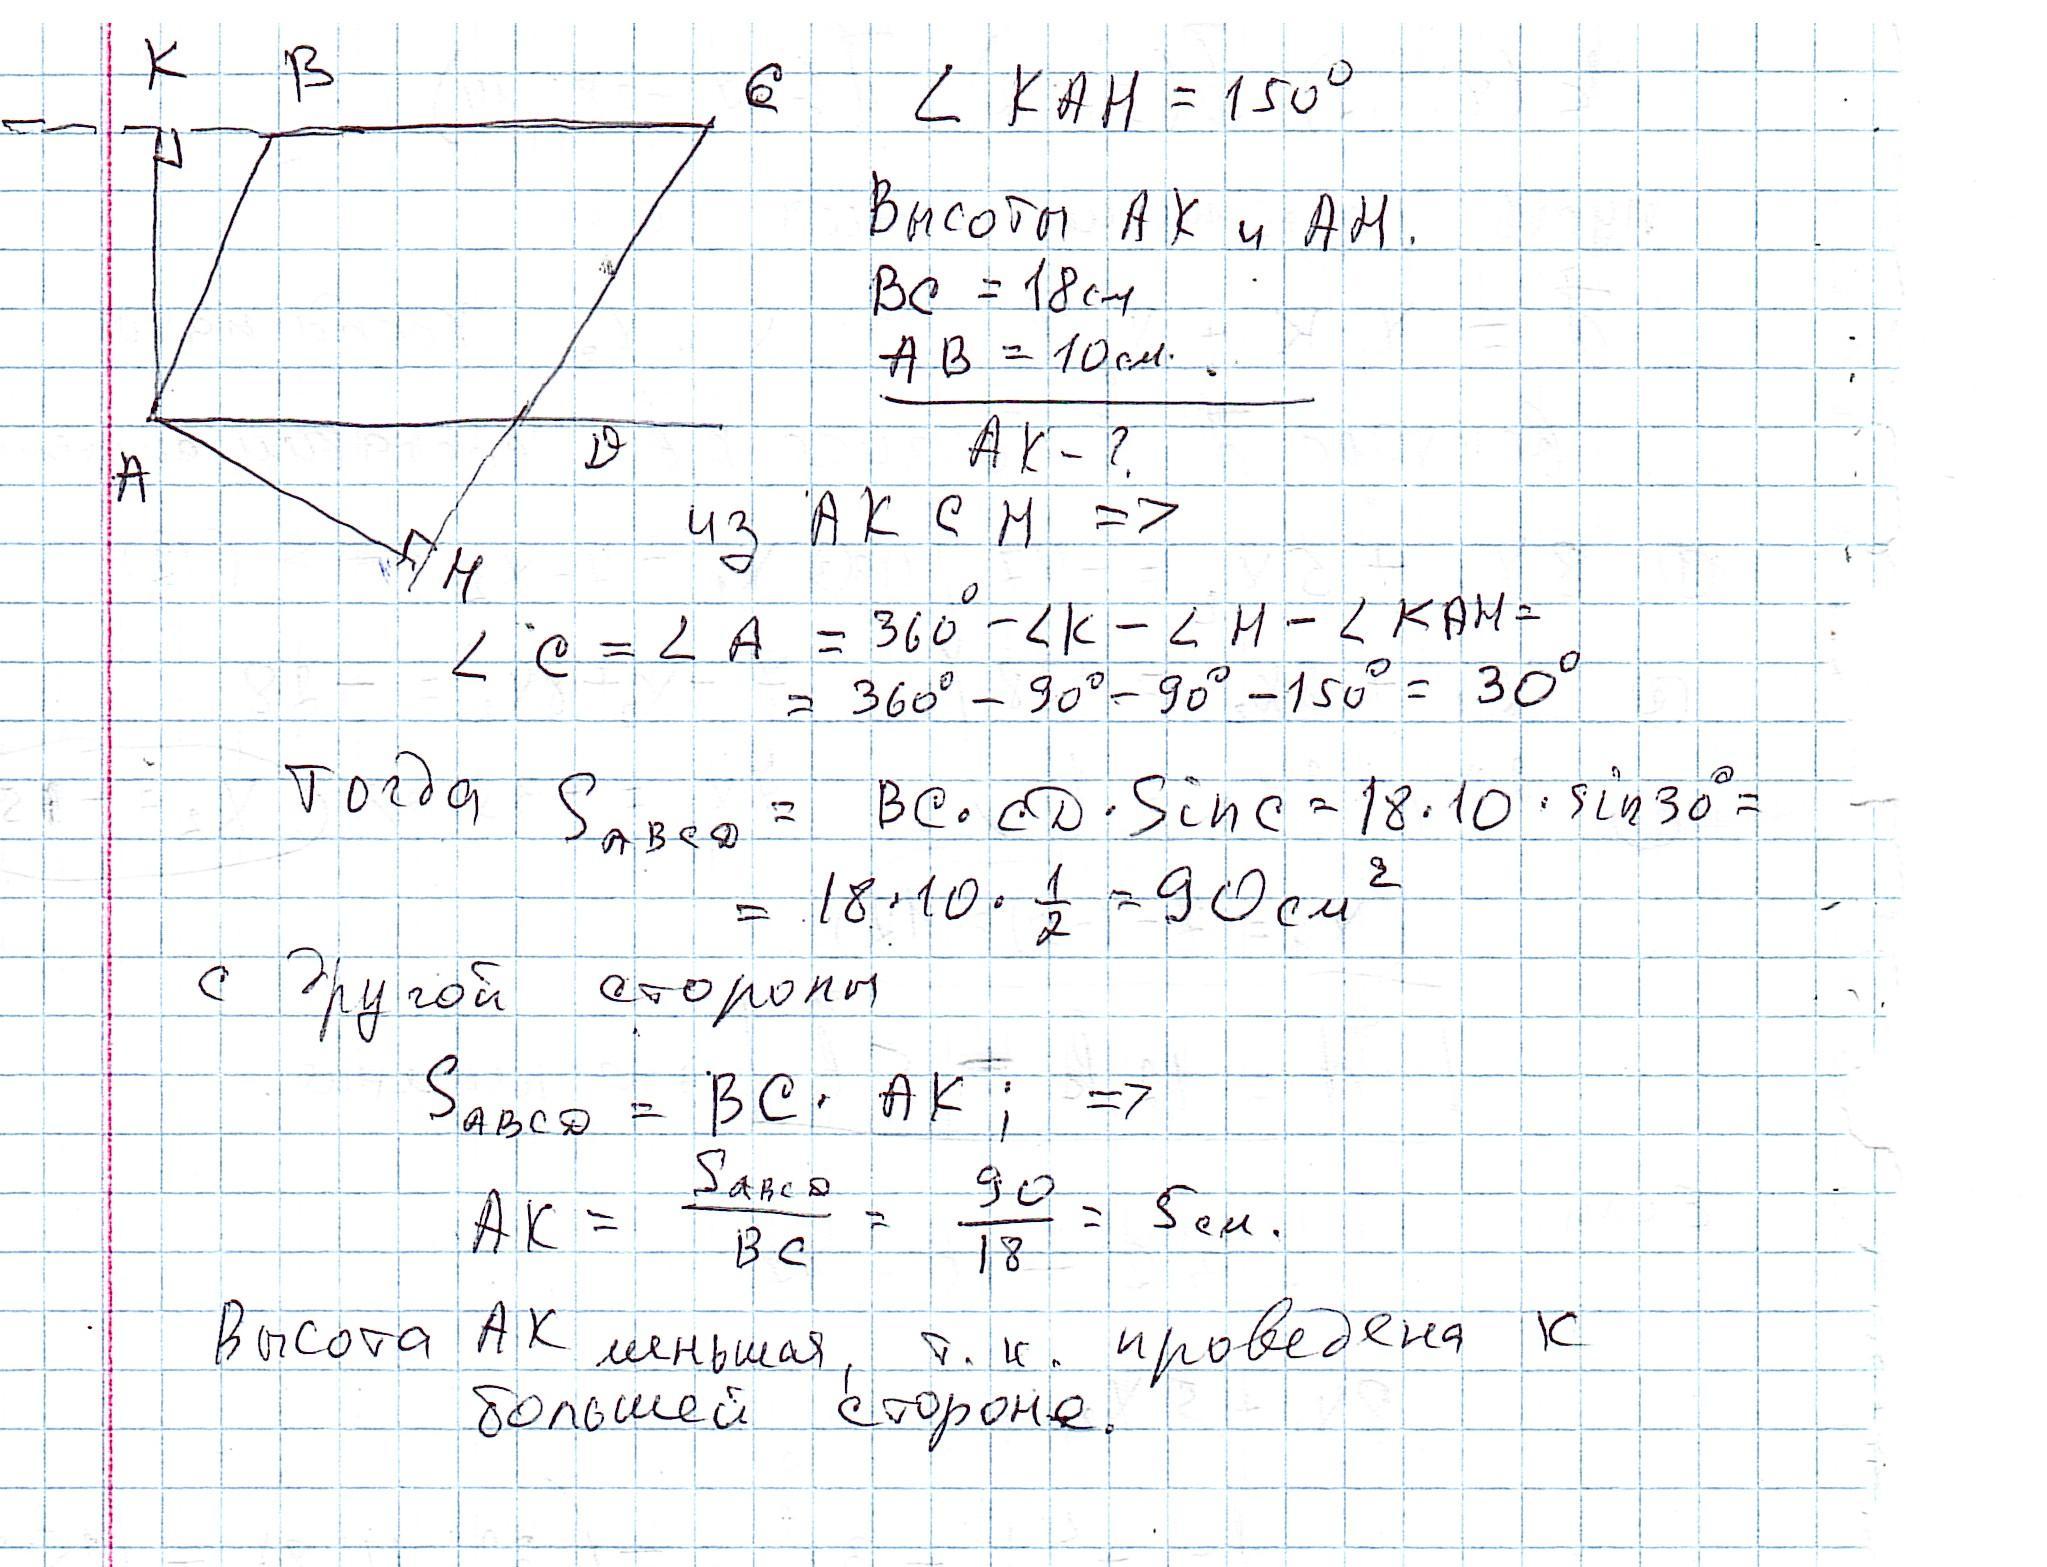 K B C ∠ KAH = 150°
Высоты AK и AH.
BC = 18 см
AB = 10 см.
AK - ?
A D H
из AKCH =>
∠ C = ∠ A = 360° - ∠K - ∠ H - ∠ KAH =
= 360° - 90° - 90° - 150° = 30°
Тогда S ABCD = BC · CD · Sin C = 18 · 10 · sin 30° =
= 18 · 10 · 1/2 = 90 см²
с другой стороны
S ABCD = BC · AK ; =>
AK = S ABCD / BC = 90 / 18 = 5 см.
Высота AK меньшая, т. к. проведена к
большей стороне.